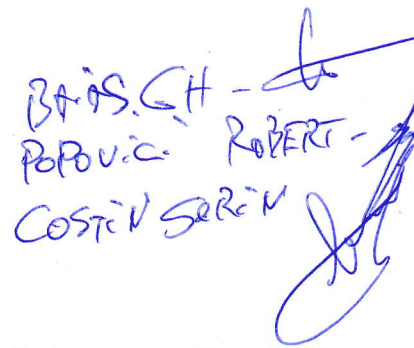 BAIAS. GH -
POPOVICI ROBERT -
COSTIN SORIN